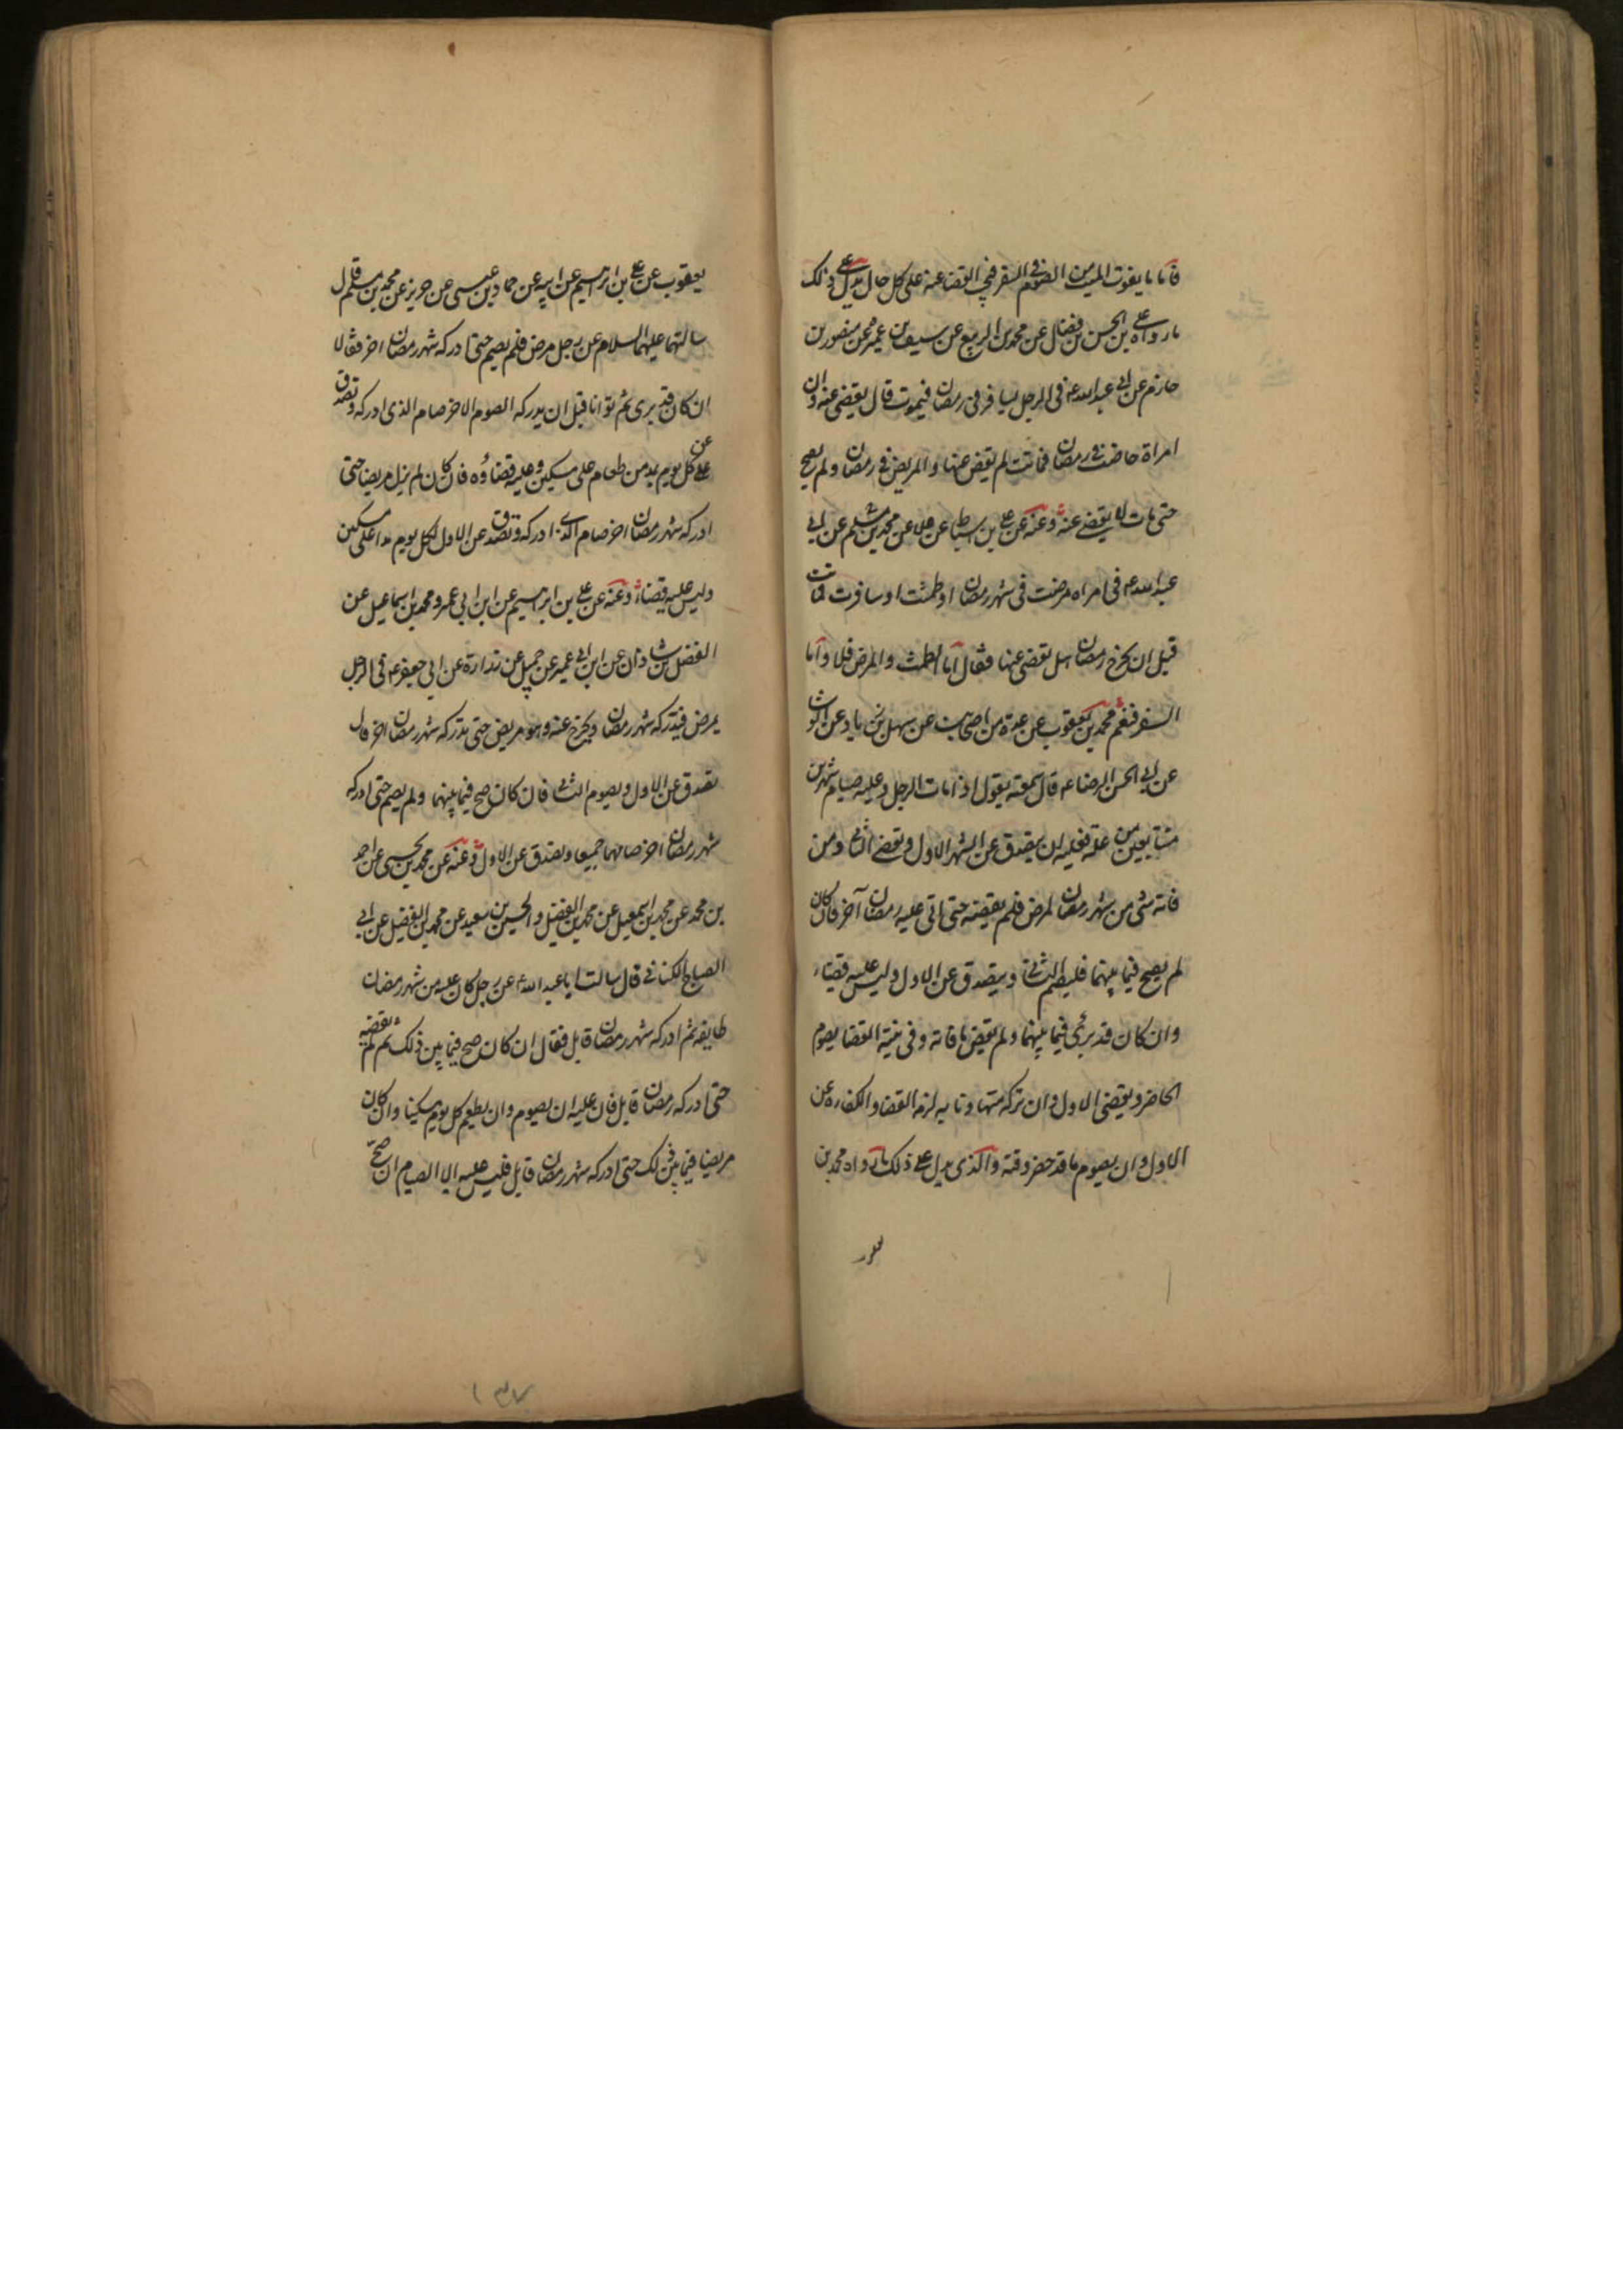 فاما ما يفوت الميت من الصوم فى السفر فيجب القضا عنه على كل حال يدل على ذلك
ما رواه على بن الحسن بن فضال عن محمد بن الربيع عن سيف بن عميرة عن منصور بن
حازم عن ابى عبد الله ع فى الرجل يسافر فى رمضان فيموت قال يقضى عنه وان
امراة حاضت فى رمضان فماتت لم يقض عنها والمريض فى رمضان ولم يصح
حتى مات لا يقضى عنه وعنه عن على بن اسباط عن علا عن محمد بن مسلم عن ابى
عبد الله ع فى امراه مرضت فى شهر رمضان او طمثت او سافرت فماتت
قبل ان يخرج رمضان هل تقضى عنها فقال اما الطمث والمرض فلا واما
السفر فنعم محمد بن يعقوب عن عدة من اصحابنا عن سهل بن زياد عن الوشا
عن ابى الحسن الرضا ع قال سمعته يقول اذا مات الرجل وعليه صيام شهرين
متتابعين من علة فعليه ان يتصدق عن الشهر الاول ويقضى الثانى ومن
فاته شئ من شهر رمضان لمرض فلم يقضيه حتى اتى عليه رمضان آخر فان كان
لم يصح فيما بينهما فليصم الثانى ويتصدق عن الاول وليس عليه قضاء
وان كان قد برئ فيما بينهما ولم يقض ما فاته وفى نيته القضا يصوم
الحاضر ويقضى الاول وان تركه متهاونا به لزمه القضا والكفاره عن
الاول وان يصوم ما قد حضر وقته والذى يدل على ذلك ما رواه محمد بن
يعقوب عن على بن ابرهيم عن ابيه عن حماد بن عيسى عن حريز عن محمد بن مسلم قال
سالتهما عليهما السلام عن رجل مرض فلم يصم حتى ادركه شهر رمضان اخر فقالا
ان كان قد برى ثم توانا قبل ان يدركه الصوم الاخر صام الذى ادركه وتصدق
عن كل يوم بمد من طعام على مسكين وعليه قضاؤه فان كان لم يزل مريضا حتى
ادركه شهر رمضان اخر صام الذى ادركه وتصدق عن الاول لكل يوم مدا على مسكين
وليس عليه قضاءه وعنه عن على بن ابرهيم عن ابن ابى عمير ومحمد بن اسماعيل عن
الفضل بن شاذان عن ابن ابى عمير عن جميل عن زرارة عن ابى جعفر ع فى الرجل
يمرض فيدركه شهر رمضان ويخرج عنه وهو مريض حتى يدركه شهر رمضان اخر قال
تصدق عن الاول ويصوم الثانى فان كان صح فيما بينهما ولم يصم حتى ادركه
شهر رمضان اخر صامهما جميعا وتصدق عن الاول وعنه عن محمد بن يحيى عن احمد
بن محمد عن محمد بن اسمعيل عن محمد بن الفضيل والحسين بن سعيد عن محمد بن الفضيل عن ابى
الصباح الكنانى قال سالت ابا عبد الله ع عن رجل كان عليه من شهر رمضان
طايفه ثم ادركه شهر رمضان قابل فقال ان كان صح فيما بين ذلك ثم لم يقضه
حتى ادركه رمضان قابل فان عليه ان يصوم وان يطعم كل يوم مسكينا وان كان
مريضا فيما بين ذلك حتى ادركه شهر رمضان قابل فليس عليه الا الصيام ان صح